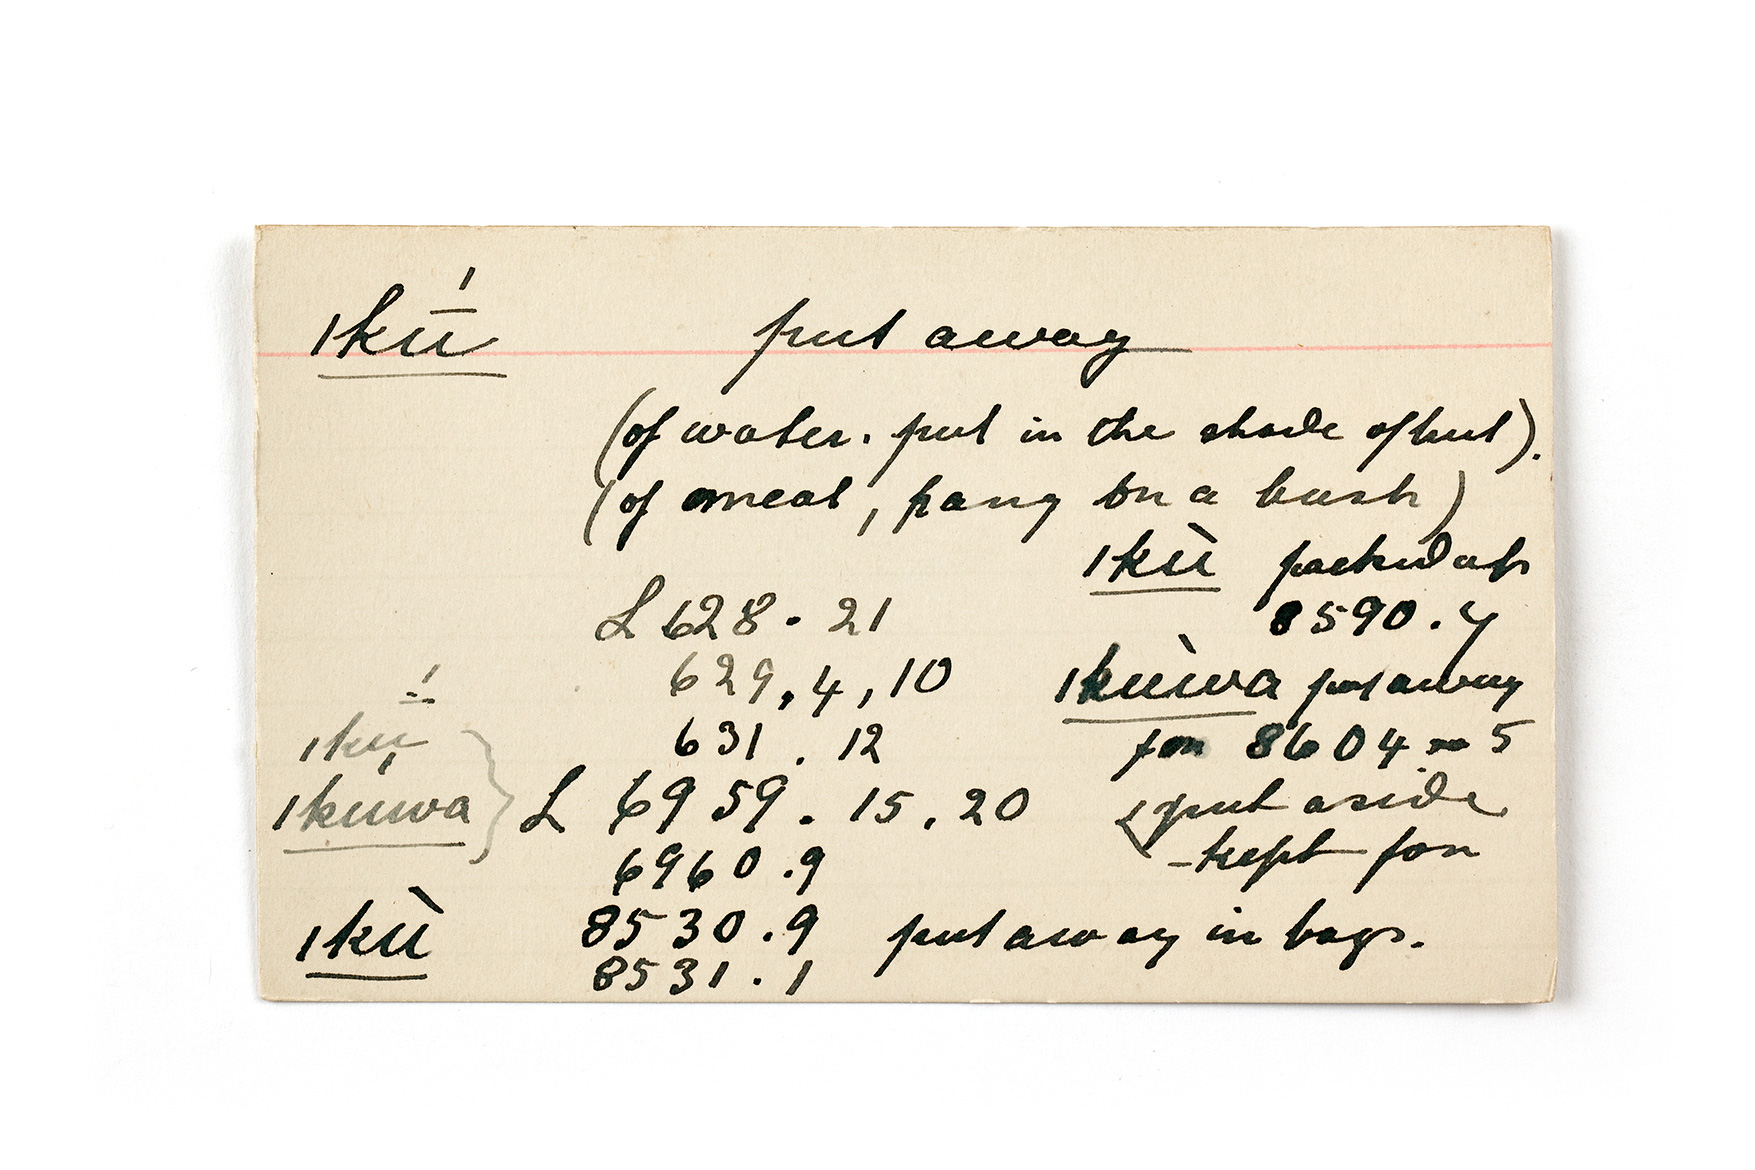 ıkū́ put away
(of water. put in the shade of hut).
(of meat, hang on a bush)
ıkù packed up
8590.
L 628. 21
629, 4, 10
ıkùwa put away
for 8604 5
631. 12
ıkū́
ıkúwa } L 6959. 15. 20
put aside
-kept for
6960.9
ıkù 8530.9 put away in bags.
8531.1